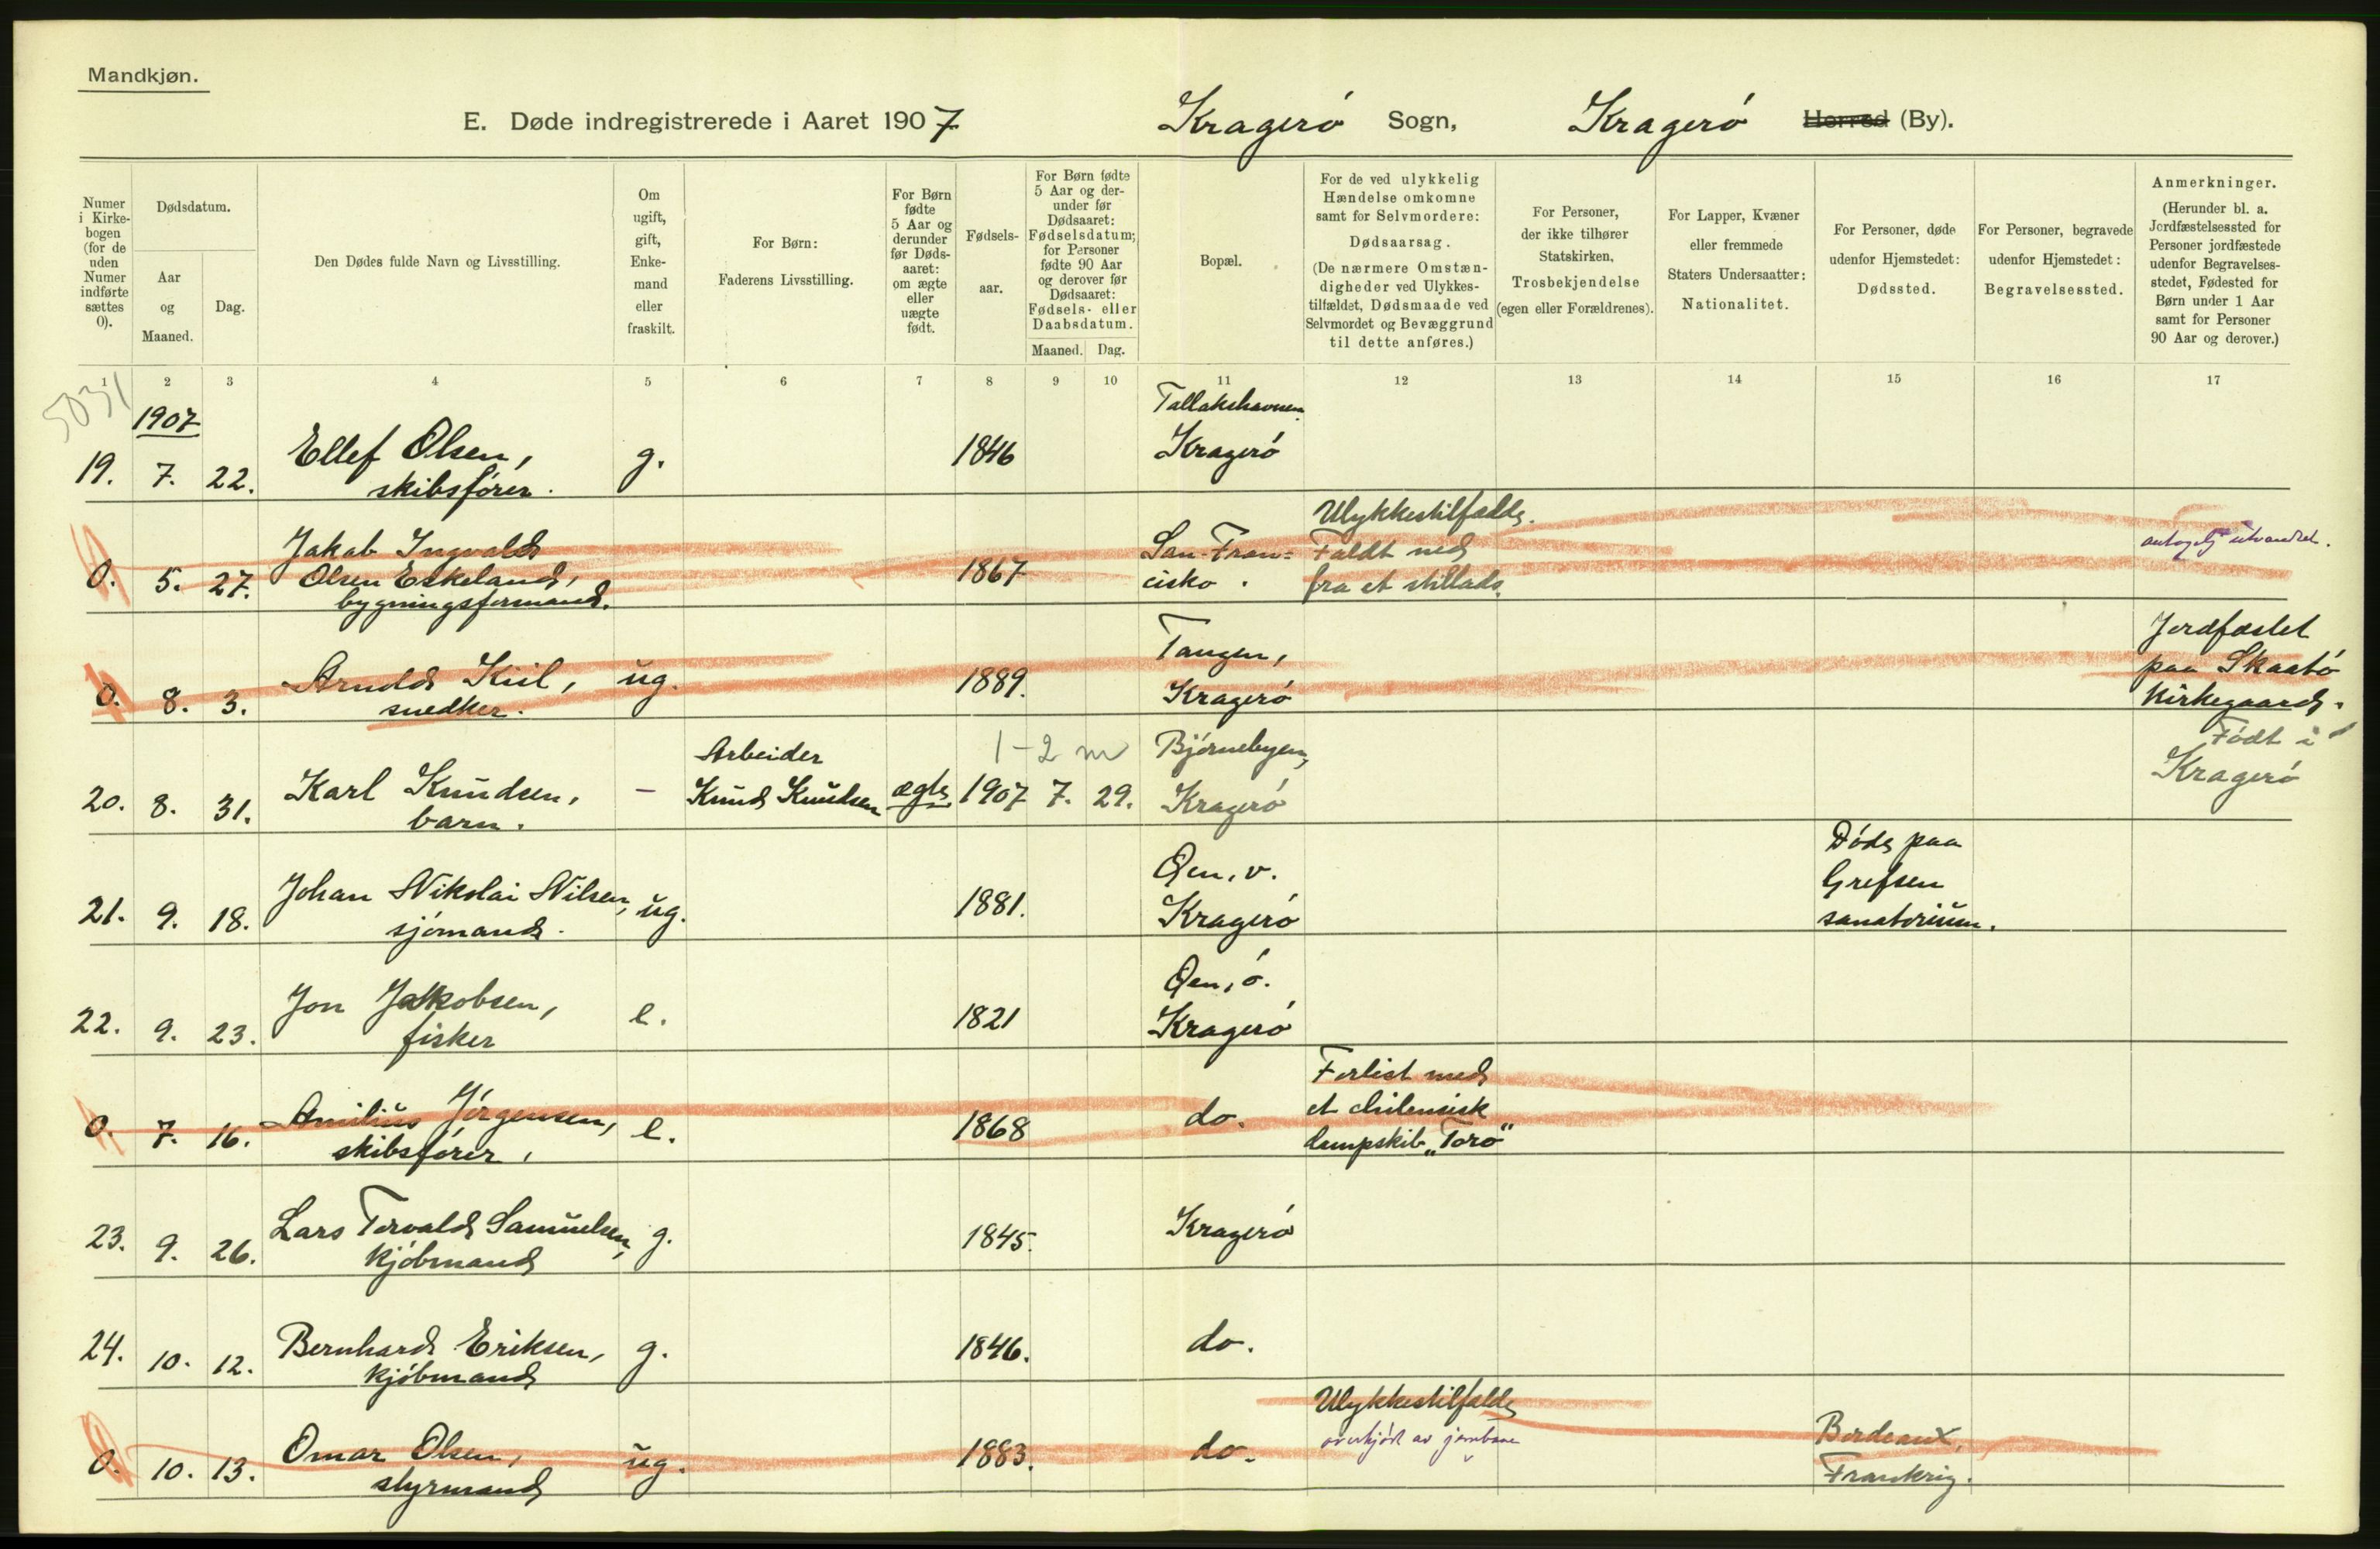 Mandkjøn.
E. Døde indregistrerede i Aaret 1907 Kragerö Sogn, Kragerö Herred (By).
Numer i Kirke-bogen (for de uden Numer indførte sættes 0).
Dødsdatum.
Aar og Maaned.
Dag.
Den Dødes fulde Navn og Livsstilling.
Om ugift, gift, Enke-mand eller fraskilt.
For Børn:
Faderens Livsstilling.
For Børn fødte 5 Aar og derunder før Døds-aaret: om ægte eller uægte født.
Fødsels-aar.
For Børn fødte 5 Aar og der-under før Dødsaaret: Fødselsdatum; for Personer fødte 90 Aar og derover før Dødsaaret: Fødsels- eller Daabsdatum.
Maaned. Dag.
Bopæl.
For de ved ulykkelig Hændelse omkomne samt for Selvmordere:
Dødsaarsag.
(De nærmere Omstæn-digheder ved Ulykkes-tilfældet, Dødsmaade ved Selvmordet og Bevæggrund til dette anføres.)
For Personer, der ikke tilhører Statskirken, Trosbekjendelse (egen eller Forældrenes).
For Lapper, Kvæner eller fremmede Staters Undersaatter: Nationalitet.
For Personer, døde udenfor Hjemstedet: Dødssted.
For Personer, begravede udenfor Hjemstedet: Begravelsessted.
Anmerkninger.
(Herunder bl. a. Jordfæstelsessted for Personer jordfæstede udenfor Begravelses-stedet, Fødested for Børn under 1 Aar samt for Personer 90 Aar og derover.)
1 2 3 4 5 6 7 8 9 10 11 12 13 14 15 16 17
5031
1907
Tallakshavnen.
19. 7. 22. Ellef Olsen, g. 1846 Kragerö
skibsförer.
Jakob Ingvald San-Fran= Ulykkestilfælde.
0. 5. 27. Olsen Eskeland, 1867 cisko. Faldt ned
bygningsformand. fra et stillads.
antagelig utvandret.
Tangen, Jordfæstet
0. 8. 3. Arnold Kiil, ug. 1889. Kragerö paa Skaatö
snedker. kirkegaard.
Arbeider 1-2 m Björnebyen, Född i
20. 8. 31. Karl Knudsen, - Knud Knudsen ægte 1907 7. 29. Kragerö Kragerö
barn.
Öen, v. Döde paa
21. 9. 18. Johan Nikolai Nilsen, ug. 1881. Kragerö Grefsen
sjömand. sanatorium.
Öen, ö.
22. 9. 23. Jon Jakobsen, e. 1821 Kragerö
fisker
Forlist med
0. 7. 16. Amilius Jörgensen, e. 1868 do. et chilensisk
skibsförer, dampskib "Toro"
23. 9. 26. Lars Torvald Samuelsen, g. 1845. Kragerö
kjöbmand
24. 10. 12. Bernhard Eriksen, g. 1846. do.
kjöbmand
Ulykkestilfælde
0. 10. 13. Omar Olsen, ug. 1883. do. overkjört av jernbane Bordeaux,
styrmand Frankrig.